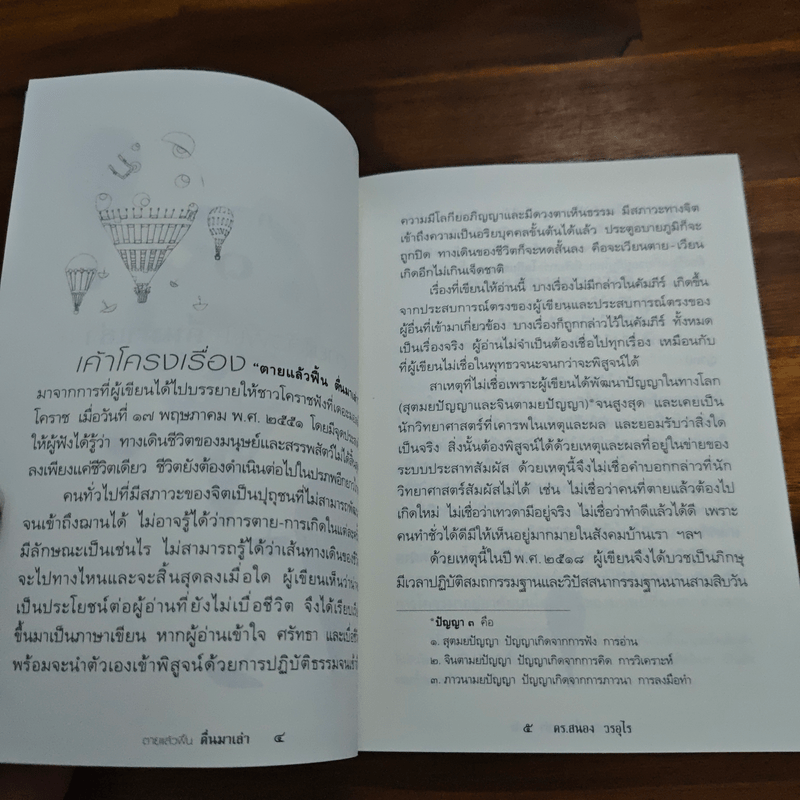 เค้าโครงเรื่อง "ตายแล้วฟื้น ตื่นมาเล่า
มาจากการที่ผู้เขียนได้ไปบรรยายให้ชาวโคราชฟังที่เดอะมอลล์
โคราช เมื่อวันที่ ๑๗ พฤษภาคม พ.ศ. ๒๕๕๑ โดยมีจุดประ
ให้ผู้ฟังได้รู้ว่า ทางเดินชีวิตของมนุษย์และสรรพสัตว์ไม่ได้สิ้น
ลงเพียงแค่ชีวิตเดียว ชีวิตยังต้องดำเนินต่อไปในปรภพอีกยาว
คนทั่วไปที่มีสภาวะของจิตเป็นปุถุชนที่ไม่สามารถพัฒนา
จนเข้าถึงฌานได้ ไม่อาจรู้ได้ว่าการตาย-การเกิดในแต่ละ
มีลักษณะเป็นเช่นไร ไม่สามารถรู้ได้ว่าเส้นทางเดินของชีวิต
จะไปทางไหนและจะสิ้นสุดลงเมื่อใด ผู้เขียนเห็นว่า
เป็นประโยชน์ต่อผู้อ่านที่ยังไม่เบื่อชีวิต จึงได้เรียบ
ขึ้นมาเป็นภาษาเขียน หากผู้อ่านเข้าใจ ศรัทธา และเชื่อ
พร้อมจะนำตัวเองเข้าพิสูจน์ด้วยการปฏิบัติธรรมจน
ตายแล้วฟื้น ตื่นมาเล่า ๔
ความมีโลกียอภิญญาและมีดวงตาเห็นธรรม มีสภาวะทางจิต
เข้าถึงความเป็นอริยบุคคลขั้นต้นได้แล้ว ประตูอบายภูมิก็จะ
ถูกปิด ทางเดินของชีวิตก็จะหดสั้นลง คือจะเวียนตาย-เวียน
เกิดอีกไม่เกินเจ็ดชาติ
เรื่องที่เขียนให้อ่านนี้ บางเรื่องไม่มีกล่าวในคัมภีร์ เกิดขึ้น
จากประสบการณ์ตรงของผู้เขียนและประสบการณ์ตรงของ
ผู้อื่นที่เข้ามาเกี่ยวข้อง บางเรื่องก็ถูกกล่าวไว้ในคัมภีร์ ทั้งหมด
เป็นเรื่องจริง ผู้อ่านไม่จำเป็นต้องเชื่อไปทุกเรื่อง เหมือนกับ
ที่ผู้เขียนไม่เชื่อในพุทธวจนะจนกว่าจะพิสูจน์ได้
สาเหตุที่ไม่เชื่อเพราะผู้เขียนได้พัฒนาปัญญาในทางโลก
(สุตมยปัญญาและจินตามยปัญญา)*จนสูงสุด และเคยเป็น
นักวิทยาศาสตร์ที่เคารพในเหตุและผล และยอมรับว่าสิ่งใด
เป็นจริง สิ่งนั้นต้องพิสูจน์ได้ด้วยเหตุและผลที่อยู่ในข่ายของ
ระบบประสาทสัมผัส ด้วยเหตุนี้จึงไม่เชื่อคำบอกกล่าวที่นัก
วิทยาศาสตร์สัมผัสไม่ได้ เช่น ไม่เชื่อว่าคนที่ตายแล้วต้องไป
เกิดใหม่ ไม่เชื่อว่าเทวดามีอยู่จริง ไม่เชื่อว่าทำดีแล้วได้ดี เพราะ
คนทำชั่วได้ดีมีให้เห็นอยู่มากมายในสังคมบ้านเรา ฯลฯ
ด้วยเหตุนี้ในปี พ.ศ. ๒๕๑๘ ผู้เขียนจึงได้บวชเป็นภิกษุ
มีเวลาปฏิบัติสมถกรรมฐานและวิปัสสนากรรมฐานนานสามสิบวัน
*ปัญญา ๓ คือ
๑. สุตมยปัญญา ปัญญาเกิดจากการฟัง การอ่าน
๒. จินตามยปัญญา ปัญญาเกิดจากการคิด การวิเคราะห์
๓. ภาวนามยปัญญา ปัญญาเกิดจากการภาวนา การลงมือทำ
๕ ดร.สนอง วรอุไร